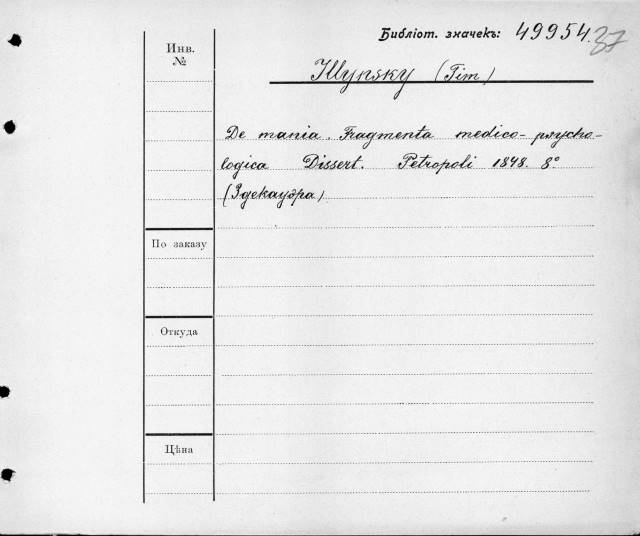 Библіот. значекъ: 49954.
37
Инв.
№
Illynsky (Tim.)
De mania. Fragmenta medico-psycho-
logica Dissert. Petropoli 1848. 8°
(Здекауэра)
По заказу
Откуда
Цѣна